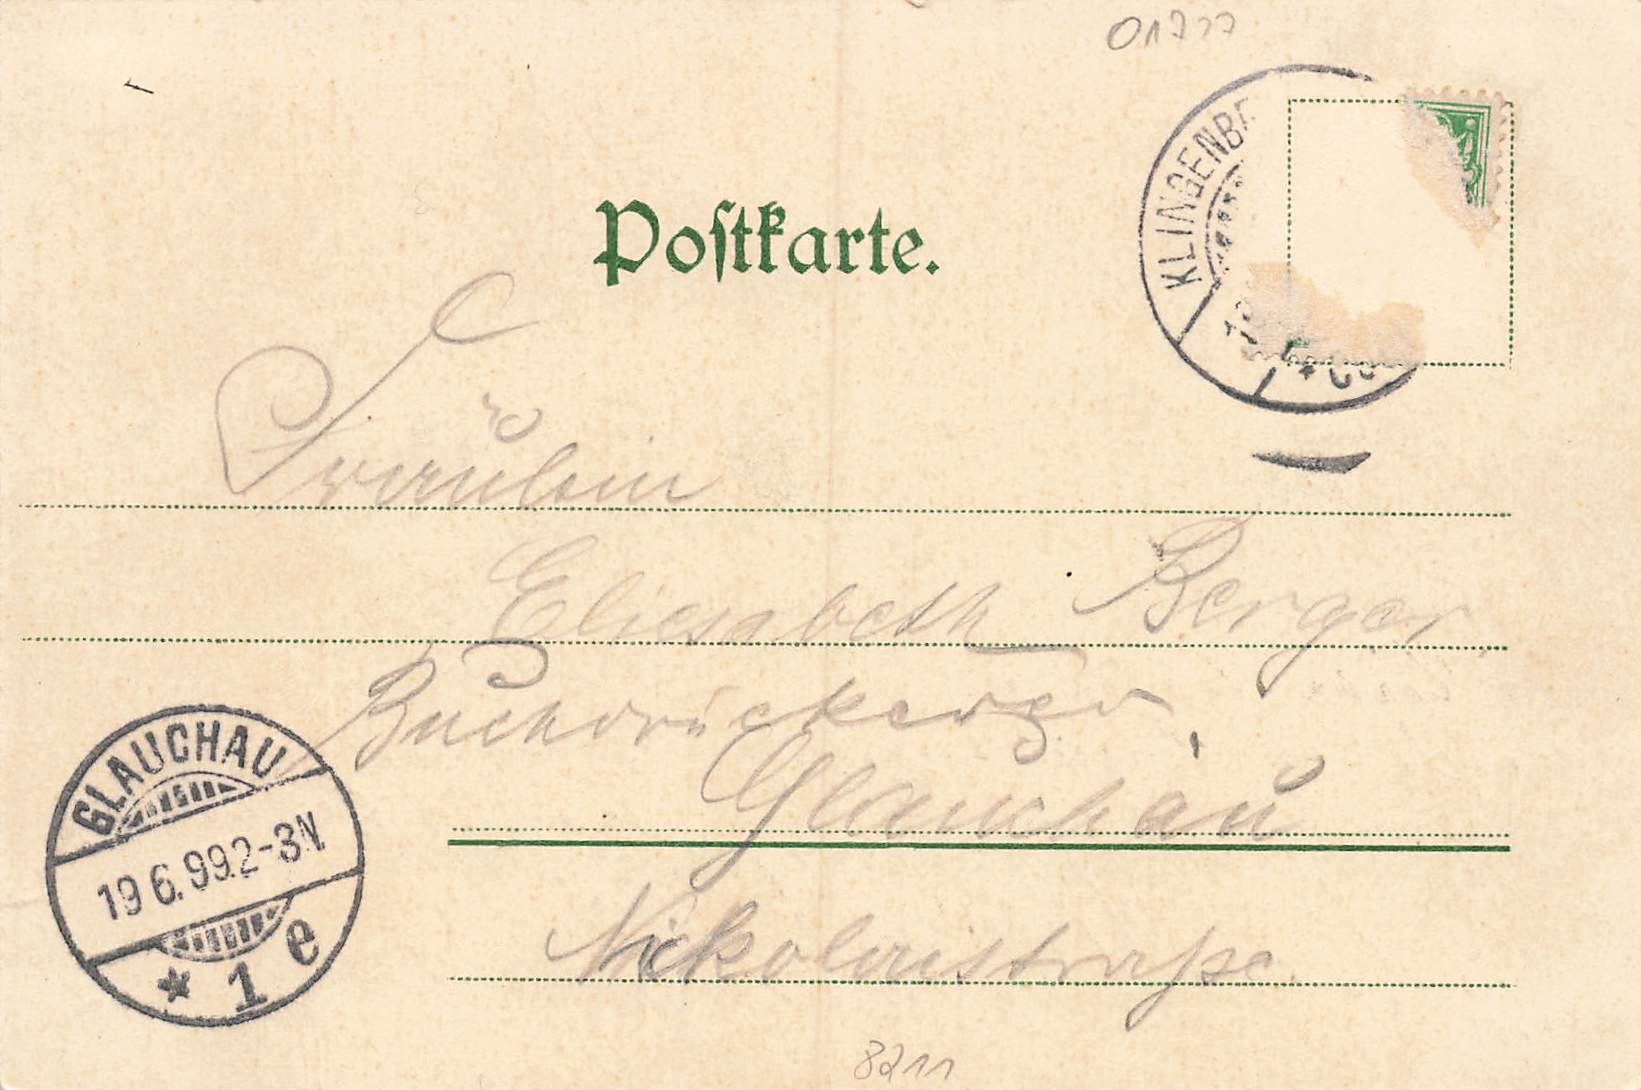 Postkarte.
KLINGENBE
Fräulein
Eliesabeth Berger
Buchdruckerei
Glauchau
Nickolaistraße.
GLAUCHAU
19 6. 99. 2-3N.
* 1 e
8211